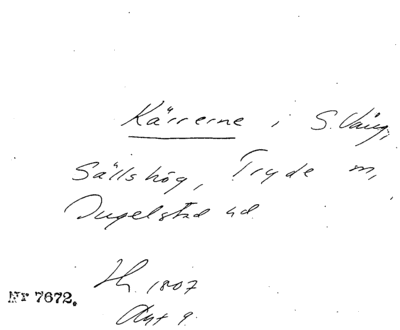 Kärrerne i S. Vång,
Sällshög, Tryde m,
Ingelstad hd
1807
Akt 9.
Nr 7672.